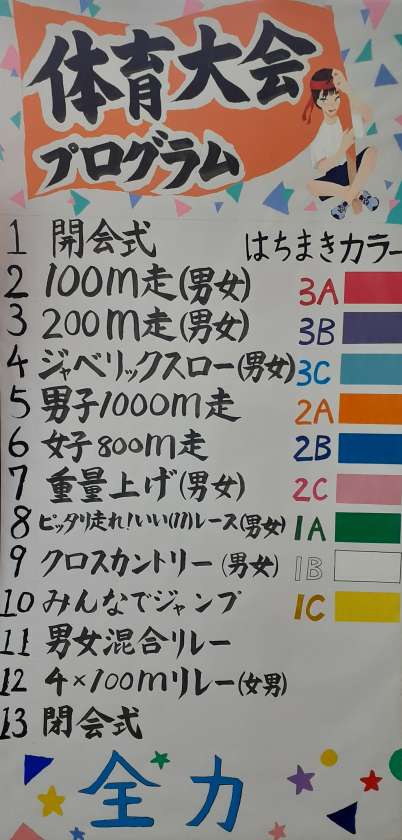 体育大会
プログラム
1 開会式
はちまきカラー
2 100m走(男女)
3A
3 200m走(男女)
3B
4 ジャベリックスロー(男女)
3C
5 男子1000m走
2A
6 女子800m走
2B
7 重量上げ(男女)
2C
8 ピッタリ走れ!いい(11)レース(男女)
1A
9 クロスカントリー(男女)
1B
10 みんなでジャンプ
1C
11 男女混合リレー
12 4×100mリレー(女男)
13 閉会式
全力